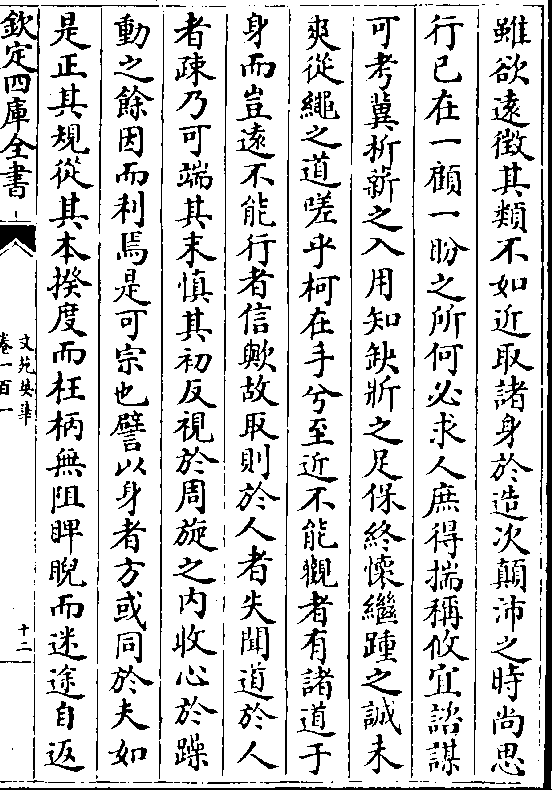 雖欲遠徴其類不如近取諸身於造次顛沛之時尚思
行已在一顧一盼之所何必求人庶得揣稱攸宜諮謀
可考冀析薪之入用知缺斨之足保終懐繼踵之誠未
爽從繩之道嗟乎柯在手兮至近不能觀者有諸道于
身而豈遠不能行者信歟故取則於人者失聞道於人
者疎乃可端其末慎其初反視於周旋之内收心於躁
動之餘因而利焉是可宗也譬以身者方或同於夫如
是正其規從其本揆度而枉柄無阻睥睨而迷途自返
欽定四庫全書
文苑英華
卷一百一
十二